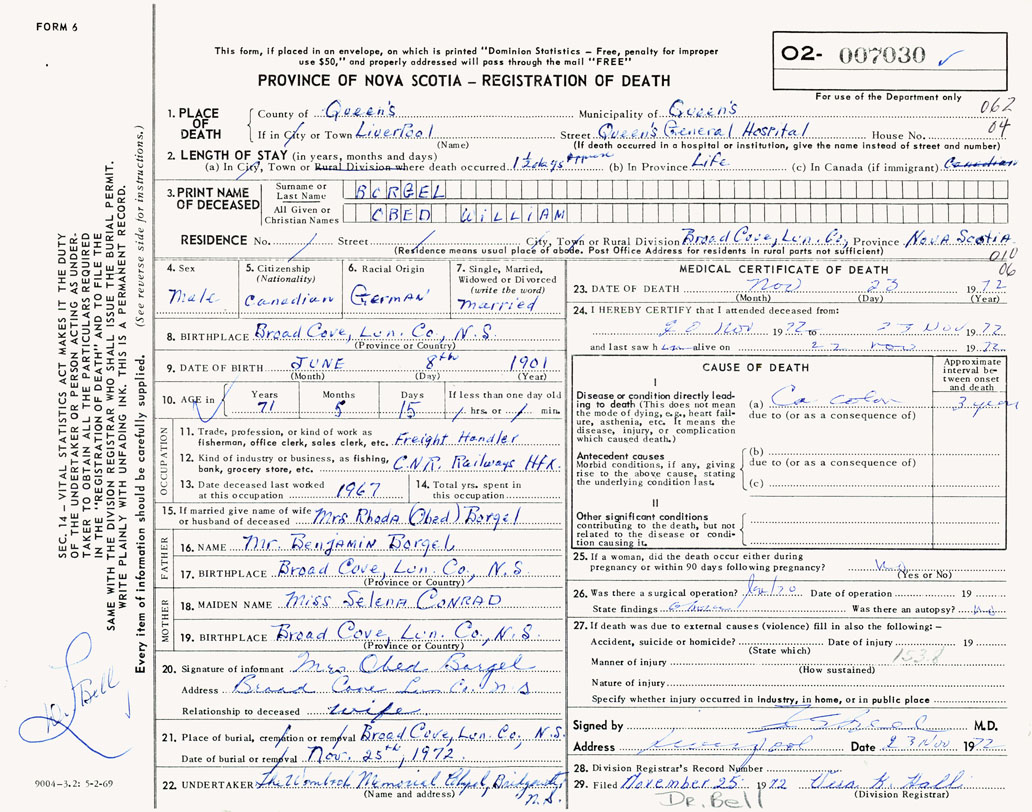 FORM 6
This form, if placed in an envelope, on which is printed "Dominion Statistics – Free, penalty for improper
use $50," and properly addressed will pass through the mail "FREE"
PROVINCE OF NOVA SCOTIA – REGISTRATION OF DEATH
O2- 007030 ✓
For use of the Department only
062
04
1. PLACE OF DEATH
County of Queen's Municipality of Queen's
If in City or Town Liverpool Street Queen's General Hospital House No.
(Name) (If death occurred in a hospital or institution, give the name instead of street and number)
2. LENGTH OF STAY (in years, months and days)
(a) In City, Town or Rural Division where death occurred 1½ days Approx (b) In Province Life (c) In Canada (if immigrant) Canadian
3. PRINT NAME OF DECEASED
Surname or Last Name BORGEL
All Given or Christian Names OBED WILLIAM
RESIDENCE No. / Street / City, Town or Rural Division Broad Cove, Lun. Co, Province Nova Scotia
(Residence means usual place of abode. Post Office Address for residents in rural parts not sufficient)
010
06
4. Sex
Male
5. Citizenship (Nationality)
Canadian
6. Racial Origin
German
7. Single, Married, Widowed or Divorced (write the word)
Married
8. BIRTHPLACE Broad Cove, Lun. Co., N.S.
(Province or Country)
9. DATE OF BIRTH JUNE 8th 1901
(Month) (Day) (Year)
10. AGE in Years Months Days If less than one day old
71 5 15 / hrs. or / min.
OCCUPATION
11. Trade, profession, or kind of work as
fisherman, office clerk, sales clerk, etc. Freight Handler
12. Kind of industry or business, as fishing,
bank, grocery store, etc. C.N.R. Railways Hfx.
13. Date deceased last worked
at this occupation 1967
14. Total yrs. spent in
this occupation
15. If married give name of wife
or husband of deceased Mrs Rhoda (Obed) Borgel
FATHER
16. NAME Mr. Benjamin Borgel
17. BIRTHPLACE Broad Cove, Lun. Co, N.S
(Province or Country)
MOTHER
18. MAIDEN NAME Miss Selena Conrad
19. BIRTHPLACE Broad Cove, Lun. Co., N.S.
(Province or Country)
20. Signature of informant Mrs Obed Borgel
Address Broad Cove Lun Co. N.S
Relationship to deceased wife
21. Place of burial, cremation or removal Broad Cove, Lun Co., N.S.
Date of burial or removal Nov. 25th, 1972
22. UNDERTAKER Memorial Chapel, N.S.
(Name and address)
MEDICAL CERTIFICATE OF DEATH
23. DATE OF DEATH Nov 23 1972
(Month) (Day) (Year)
24. I HEREBY CERTIFY that I attended deceased from:
Nov 1972 to 23 Nov 1972
and last saw him alive on 22 Nov 1972
CAUSE OF DEATH
Approximate interval between onset and death
I
Disease or condition directly leading to death (This does not mean the mode of dying, e.g., heart failure, asthenia, etc. It means the disease, injury, or complication which caused death.)
(a) Ca colon 3 year
due to (or as a consequence of)
Antecedent causes
Morbid conditions, if any, giving rise to the above cause, stating the underlying condition last.
(b)
due to (or as a consequence of)
(c)
II
Other significant conditions
contributing to the death, but not related to the disease or condition causing it.
25. If a woman, did the death occur either during
pregnancy or within 90 days following pregnancy?
(Yes or No)
26. Was there a surgical operation? Date of operation 19
State findings Was there an autopsy? no
27. If death was due to external causes (violence) fill in also the following: –
Accident, suicide or homicide? Date of injury 19
(State which)
Manner of injury 1538
(How sustained)
Nature of injury
Specify whether injury occurred in industry, in home, or in public place
Signed by M.D.
Address Liverpool Date 23 Nov 1972
28. Division Registrar's Record Number
29. Filed November 25 1972 Hall
(Division Registrar)
DR. BELL
SEC. 14 – VITAL STATISTICS ACT MAKES IT THE DUTY
OF THE UNDERTAKER OR PERSON ACTING AS UNDERTAKER
TO OBTAIN ALL THE PARTICULARS REQUIRED
IN THE "REGISTRATION OF DEATH" AND TO FILE THE
SAME WITH THE DIVISION REGISTRAR WHO SHALL ISSUE THE BURIAL PERMIT.
WRITE PLAINLY WITH UNFADING INK. THIS IS A PERMANENT RECORD.
Every item of information should be carefully supplied. (See reverse side for instructions.)
Bell
9004-3.2: 5-2-69